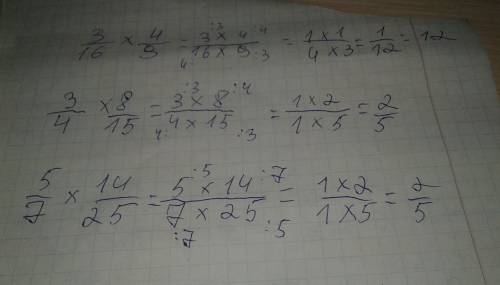 3/16 × 4/9 = 3 :3 × 4 :4 / 16 :4 × 9 :3 = 1×1/4×3 = 1/12 = 12
3/4 × 8/15 = 3 :3 × 8 :4 / 4 :4 × 15 :3 = 1×2/1×5 = 2/5
5/7 × 14/25 = 5 :5 × 14 :7 / 7 :7 × 25 :5 = 1×2/1×5 = 2/5